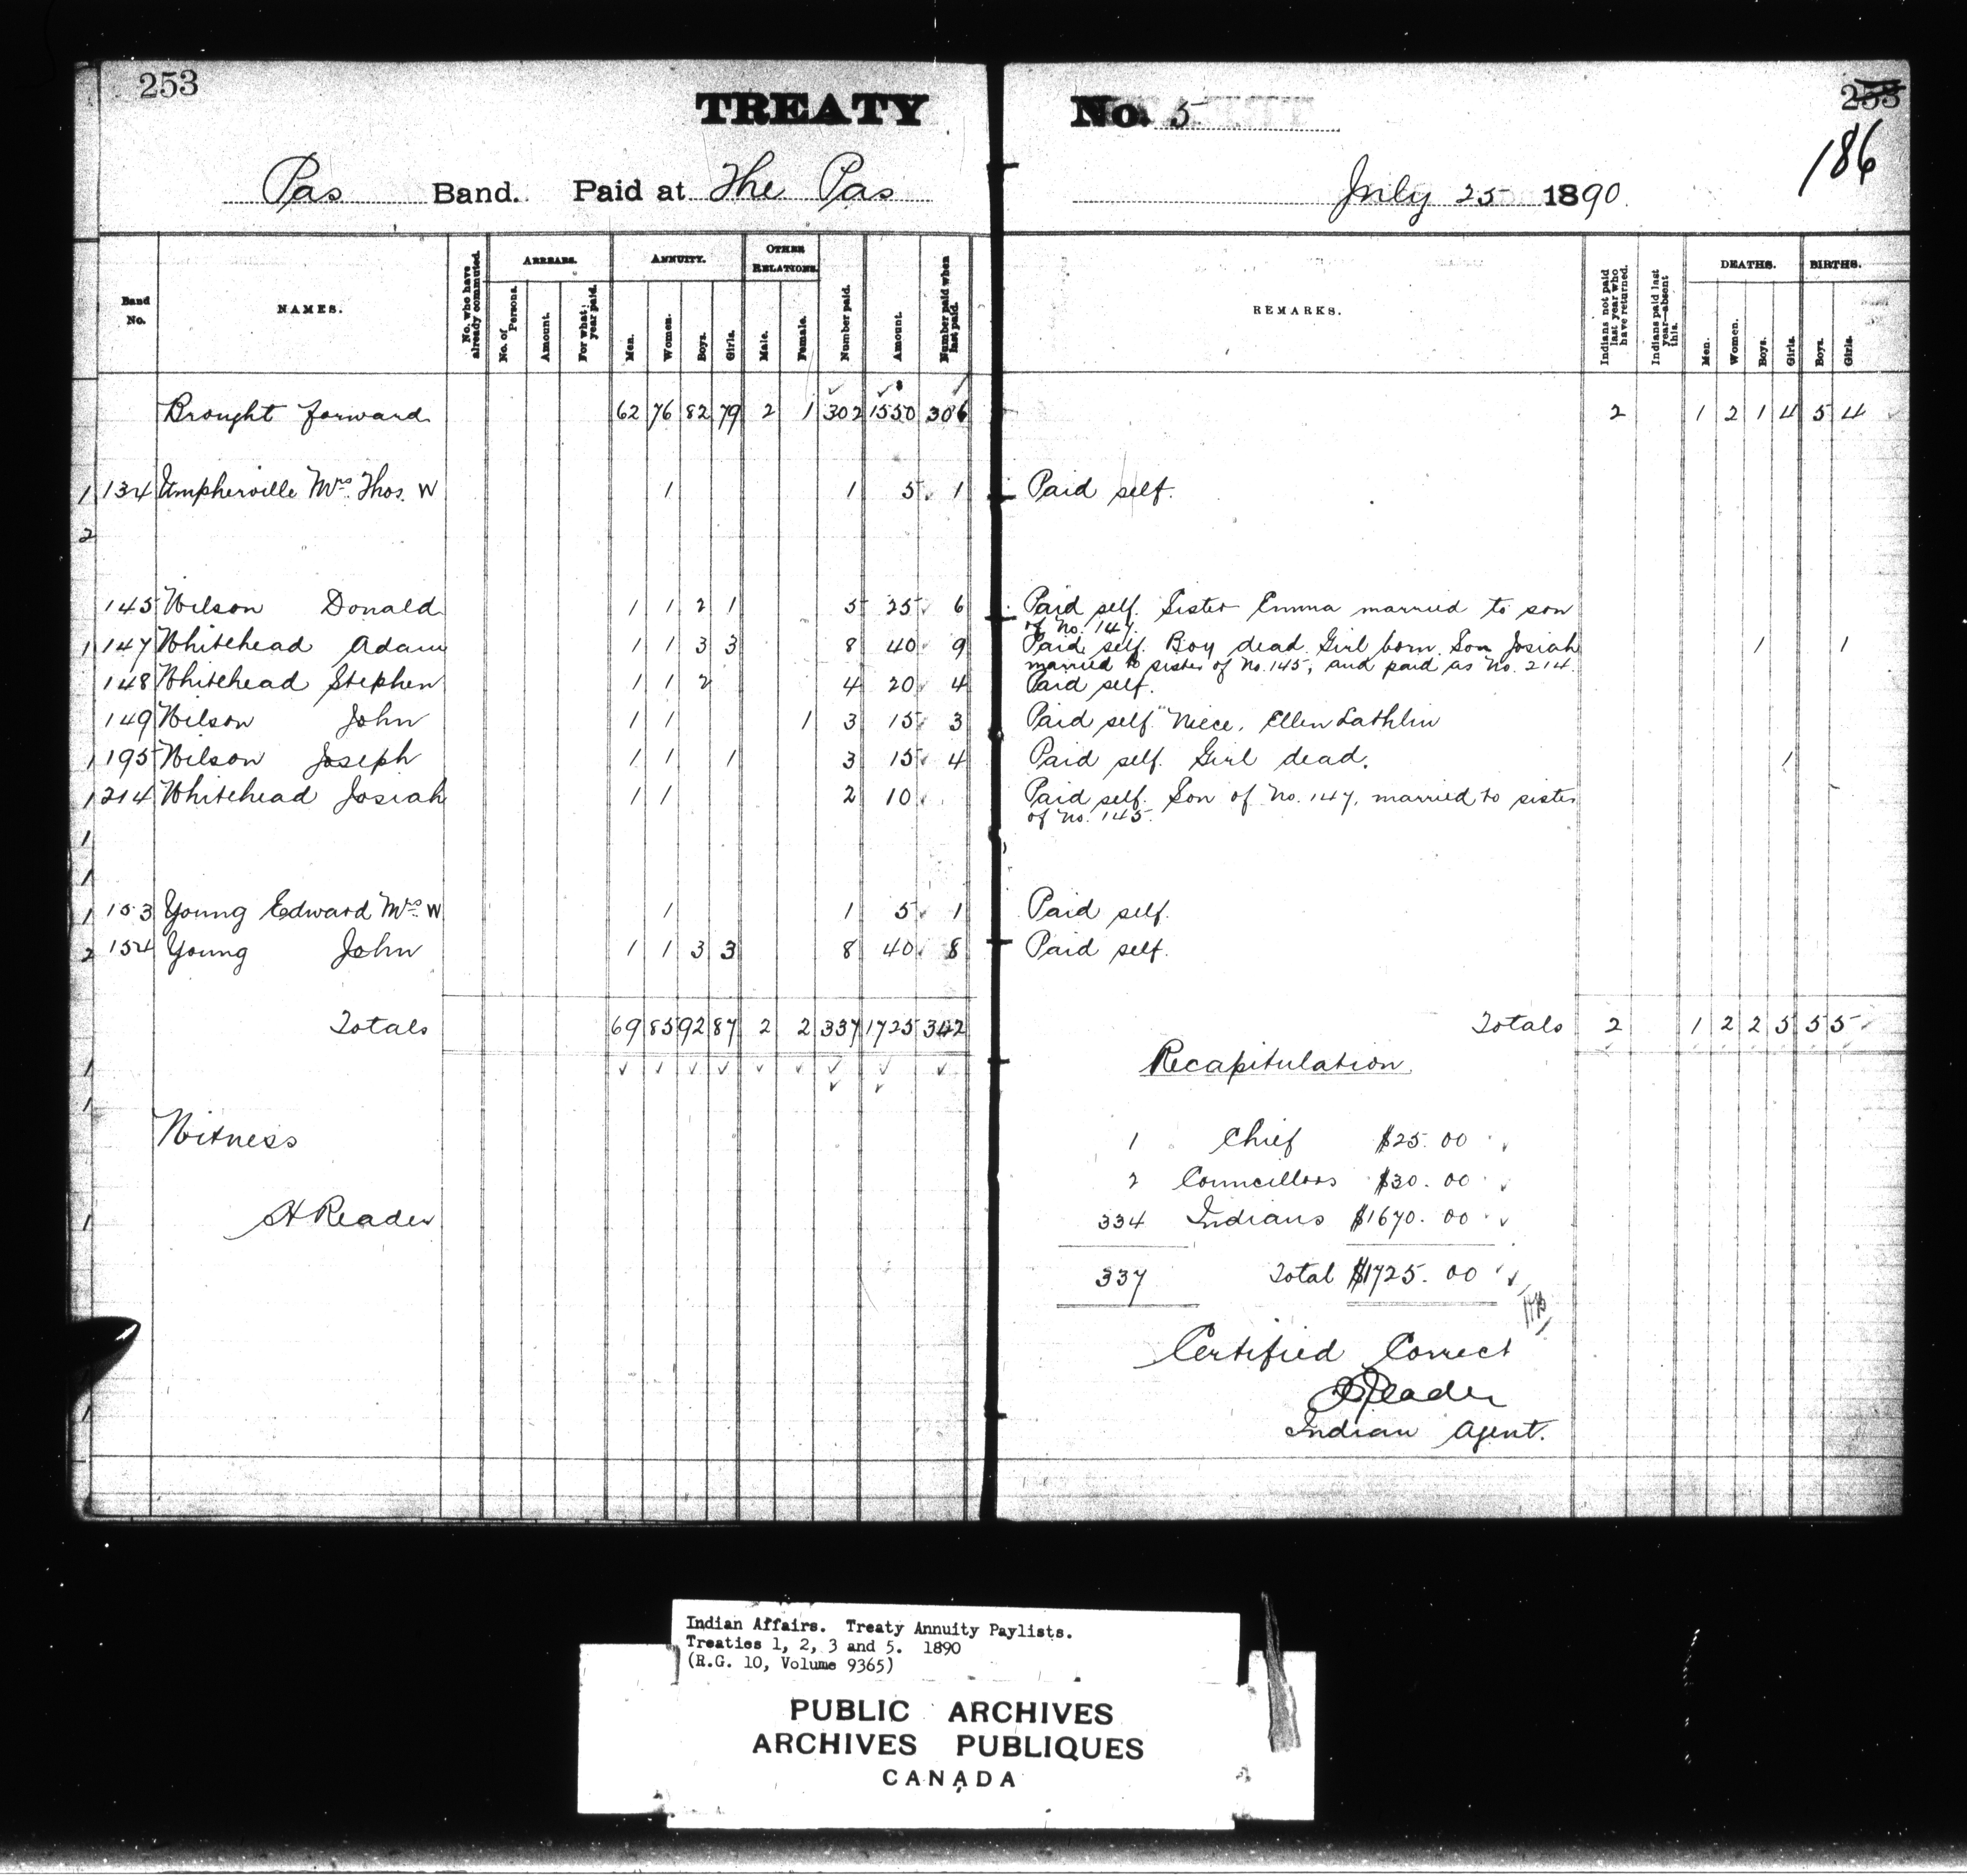 253
TREATY No. 5
253
186
Pas Band. Paid at The Pas July 25 1890.
Band No. NAMES. No. who have already commuted. ARREARS. No. of Persons. Amount. For what year paid. ANNUITY. Men. Women. Boys. Girls. OTHER RELATIONS. Male. Female. Number paid. Amount. Number paid when last paid. REMARKS. Indians not paid last year who have returned. Indians paid last year—absent this. DEATHS. Men. Women. Boys. Girls. BIRTHS. Boys. Girls.
Brought forward 62 76 82 79 2 1 302 1550 306 2 1 2 1 4 5 4
1 134 Umpherville Mrs. Thos. W 1 1 5 1 Paid self.
2
145 Wilson Donald 1 1 2 1 5 25 6 Paid self. Sister Emma married to son
of No. 147.
1 147 Whitehead Adam 1 1 3 3 8 40 9 Paid self. Boy dead. Girl born. Son Josiah 1 1
married to sister of No. 145, and paid as No. 214.
148 Whitehead Stephen 1 1 2 4 20 4 Paid self.
149 Wilson John 1 1 1 3 15 3 Paid self. Niece, Ellen Lathlin
1 195 Wilson Joseph 1 1 1 3 15 4 Paid self. Girl dead. 1
1 214 Whitehead Josiah 1 1 2 10 Paid self. Son of No. 147, married to sister
of No. 145.
1
1
1 153 Young Edward Mrs. W 1 1 5 1 Paid self.
2 154 Young John 1 1 3 3 8 40 8 Paid self.
Totals 69 85 92 87 2 2 337 1725 342 Totals 2 1 2 2 5 5 5
1 Recapitulation.
1
Witness 1 Chief $25.00
2 Councillors $30.00
1 H Reader 334 Indians $1670.00
337 Total $1725.00
Certified Correct
Reader
1 Indian Agent.
Indian Affairs. Treaty Annuity Paylists.
Treaties 1, 2, 3 and 5. 1890
(R.G. 10, Volume 9365)
PUBLIC ARCHIVES
ARCHIVES PUBLIQUES
CANADA